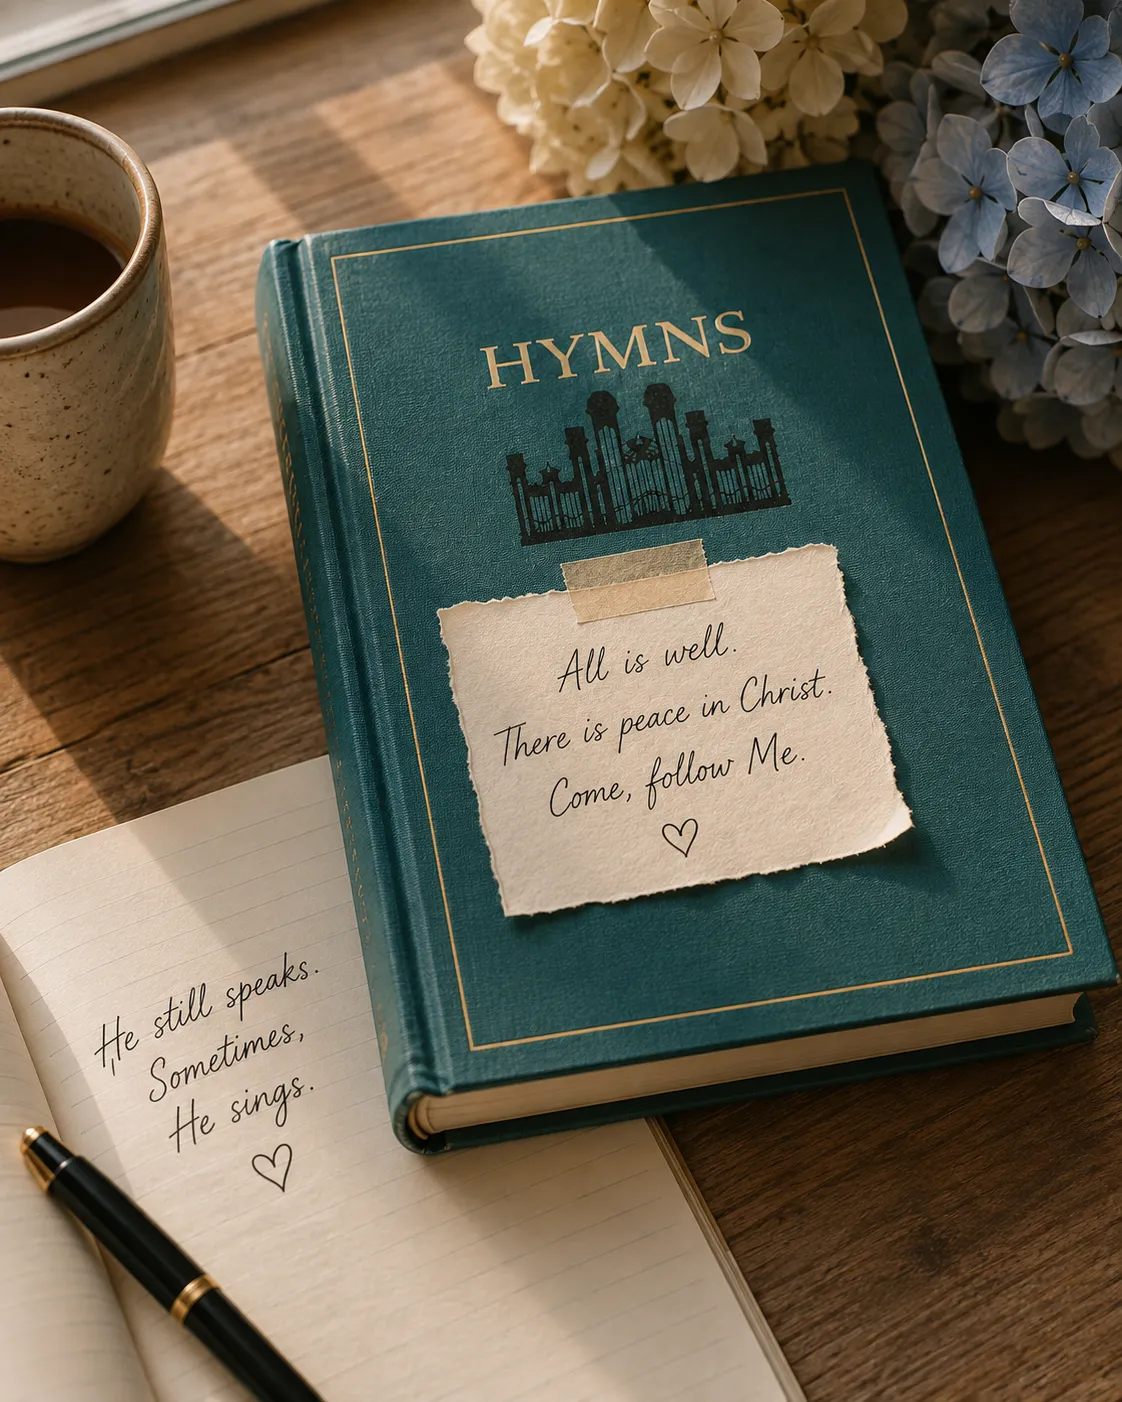 HYMNS
All is well.
There is peace in Christ.
Come, follow Me.
He still speaks.
Sometimes,
He sings.